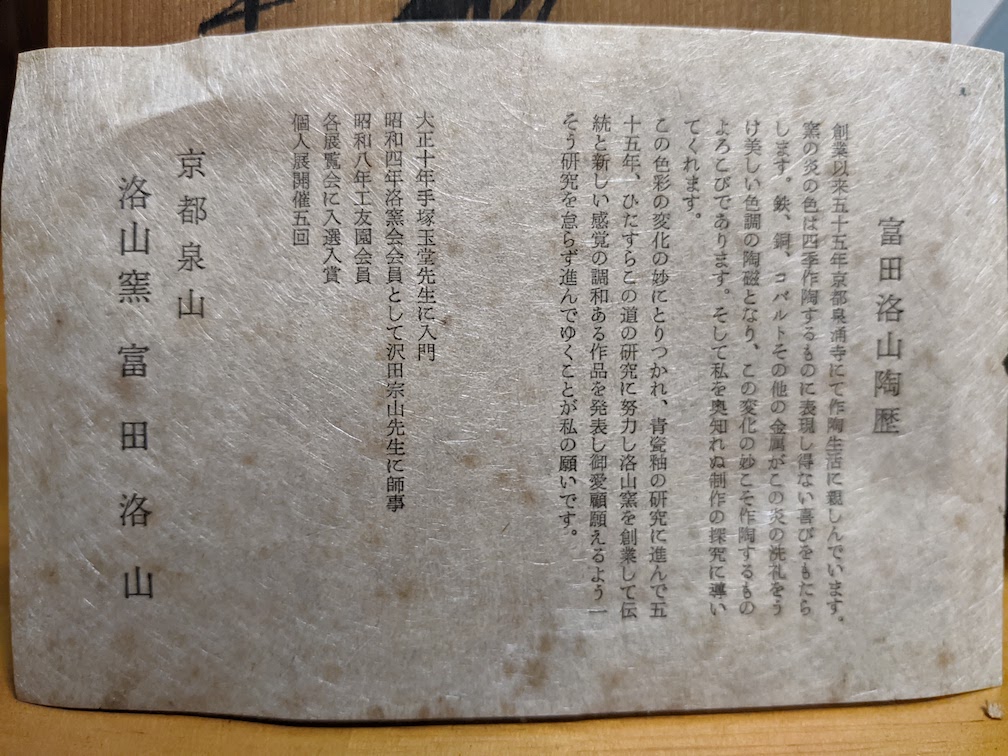 富田洛山陶歴
創業以来五十五年京都泉涌寺にて作陶生活に親しんでいます。
窯の炎の色は四季作陶するものに表現し得ない喜びをもたら
します。鉄、銅、コバルトその他の金属がこの炎の洗礼をう
け美しい色調の陶磁となり、この変化の妙こそ作陶するもの
よろこびであります。そして私を奥知れぬ制作の探究に導い
てくれます。
この色彩の変化の妙にとりつかれ、青瓷釉の研究に進んで五
十五年、ひたすらこの道の研究に努力し洛山窯を創業して伝
統と新しい感覚の調和ある作品を発表し御愛顧願えるよう一
そう研究を怠らず進んでゆくことが私の願いです。
大正十年手塚玉堂先生に入門
昭和四年洛窯会会員として沢田宗山先生に師事
昭和八年工友園会員
各展覧会に入選入賞
個人展開催五回
京都泉山
洛山窯 富田洛山